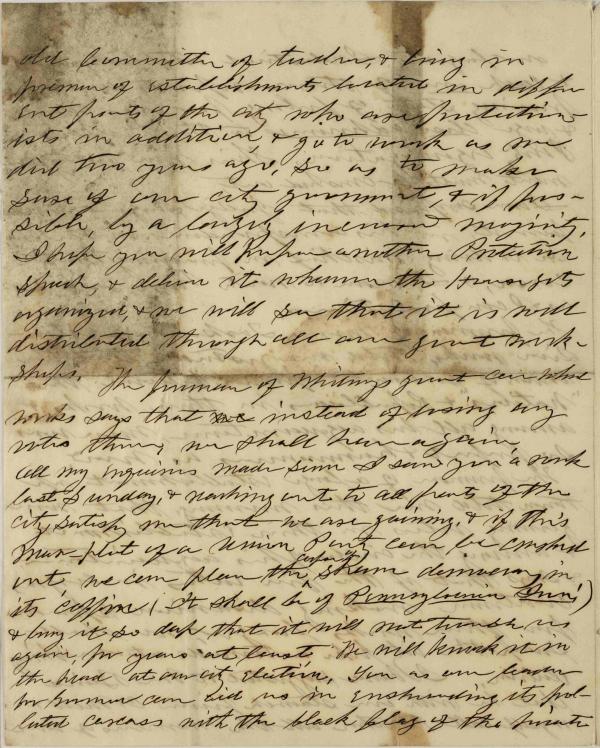 old Committee of twelve, & bring in
foremen of establishments located in differ
ent parts of the city who are protection-
ists in addition, & go to work as we
did two years ago, so as to make
sure of our city government, & if pos-
sible, by a largely increased majority,
I hope you will prepare another Protection
speech, & deliver it whenever the House gets
organized, & we will see that it is well
distributed through all our great work-
shops. The foreman of Whitneys great car wheel
works says that instead of losing any
votes there, we shall have a gain,
all my inquiries made since I saw you a week
last Sunday, & reaching out to all parts of the
city, satisfy me that we are gaining, & if this
Mar-plot of a Union Party can be crushed
out, we can place the carcass of sham democracy in
its coffin (it shall be of Pennsylvania Iron)
& bury it so deep that it will not trouble us
again for years at least. We will knock it in
the head at our city election, You as our leader
for can aid us in enshrouding its pol-
luted carcass with the black flag of the pirate